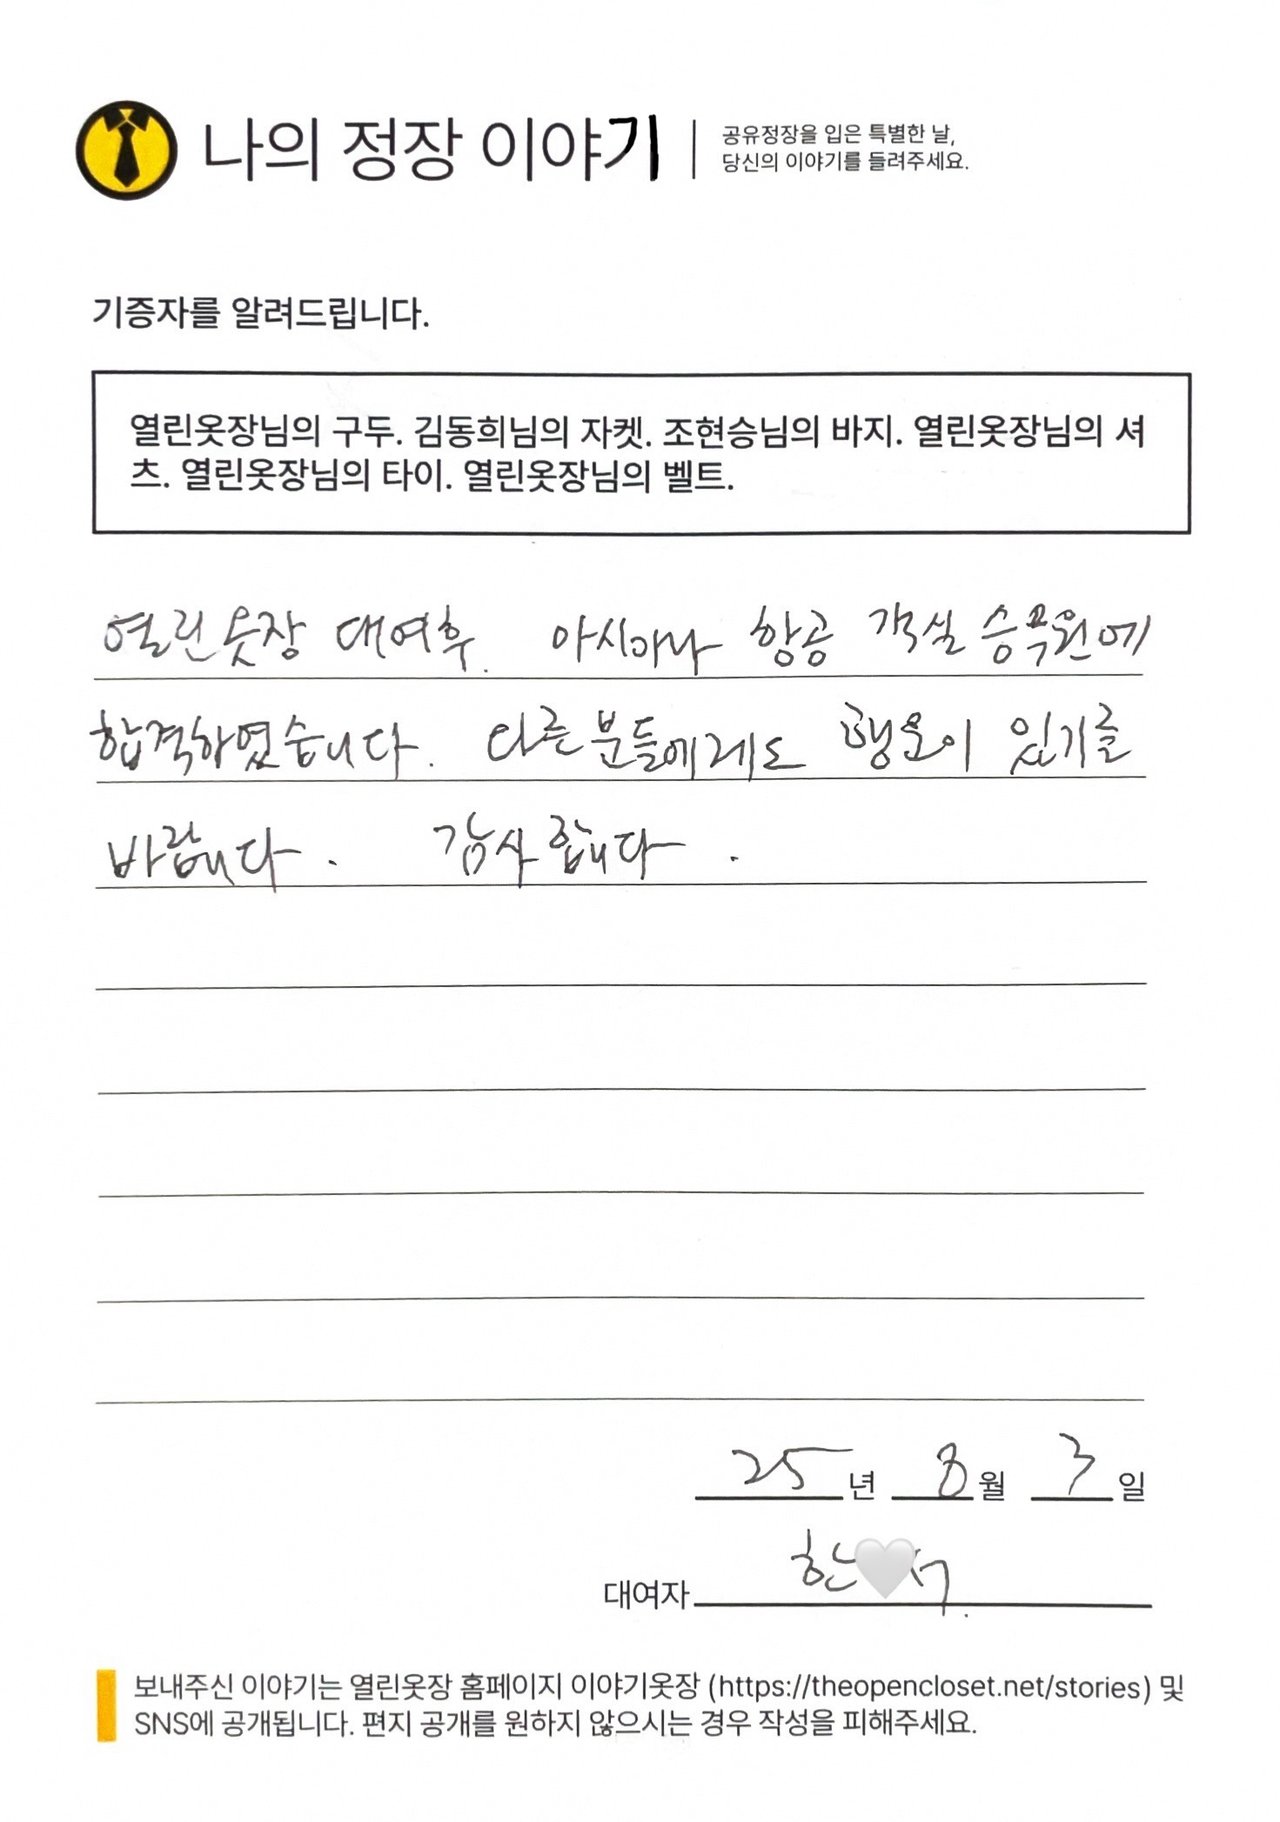 나의 정장 이야기
공유정장을 입은 특별한 날,
당신의 이야기를 들려주세요.
기증자를 알려드립니다.
열린옷장님의 구두. 김동희님의 자켓. 조현승님의 바지. 열린옷장님의 셔
츠. 열린옷장님의 타이. 열린옷장님의 벨트.
열린옷장 대여후. 아시아나 항공 객실 승무원에
합격하였습니다. 다른분들에게도 행운이 있기를
바랍니다. 감사합니다.
25년 8월 3일
대여자 한
보내주신 이야기는 열린옷장 홈페이지 이야기옷장 (https://theopencloset.net/stories) 및
SNS에 공개됩니다. 편지 공개를 원하지 않으시는 경우 작성을 피해주세요.